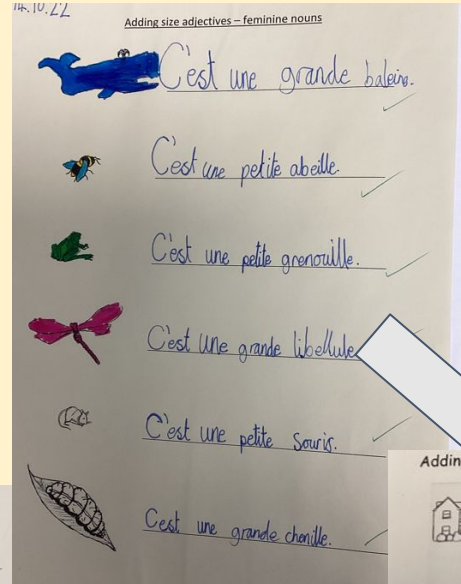 14.10.22
Adding size adjectives – feminine nouns
C'est une grande baleine.
C'est une petite abeille.
C'est une petite grenouille.
C'est une grande libellule
C'est une petite souris.
C'est une grande chenille.
Addin